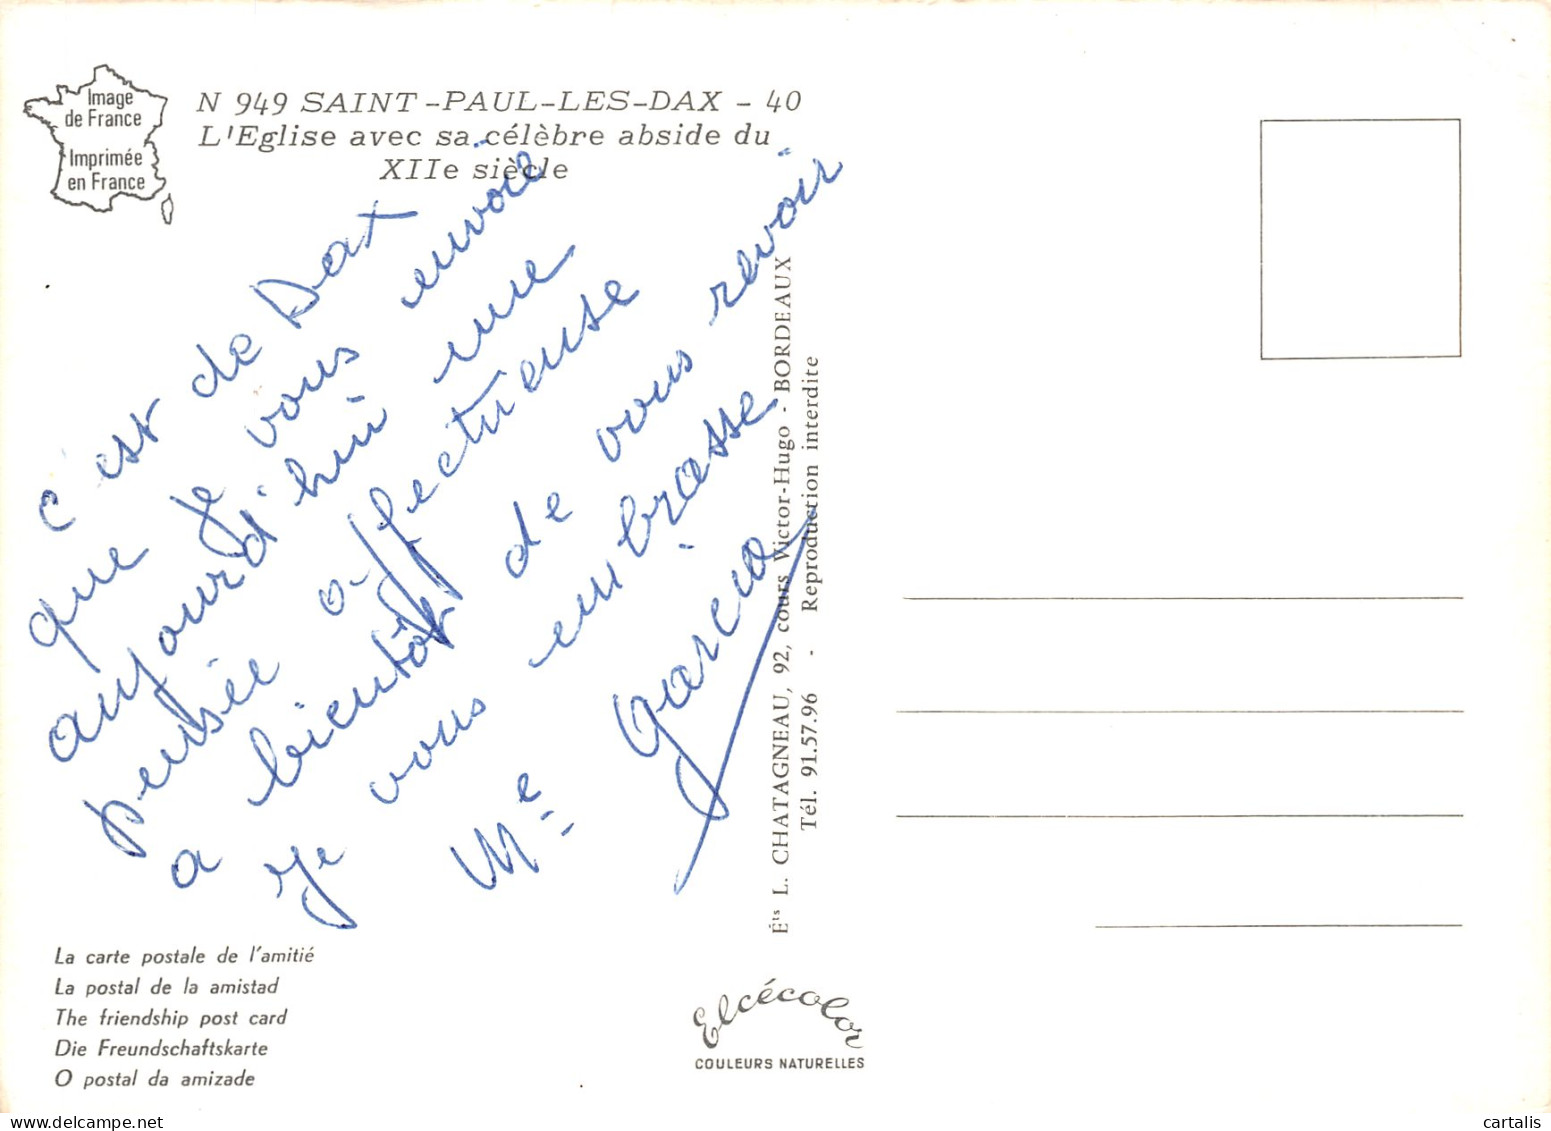 Image
de France
Imprimée
en France
N 949 SAINT-PAUL-LES-DAX - 40
L'Eglise avec sa célèbre abside du
XIIe siècle
c'est de Dax
que je vous envoie
aujourd'hui une
pensée affectueuse
a bientôt de vous revoir
je vous embrasse
Me Garcia
Éts L. CHATAGNEAU, 92, cours Victor-Hugo - BORDEAUX
Tél. 91.57.96 - Reproduction interdite
La carte postale de l'amitié
La postal de la amistad
The friendship post card
Die Freundschaftskarte
O postal da amizade
Elcécolor
COULEURS NATURELLES
cartalis